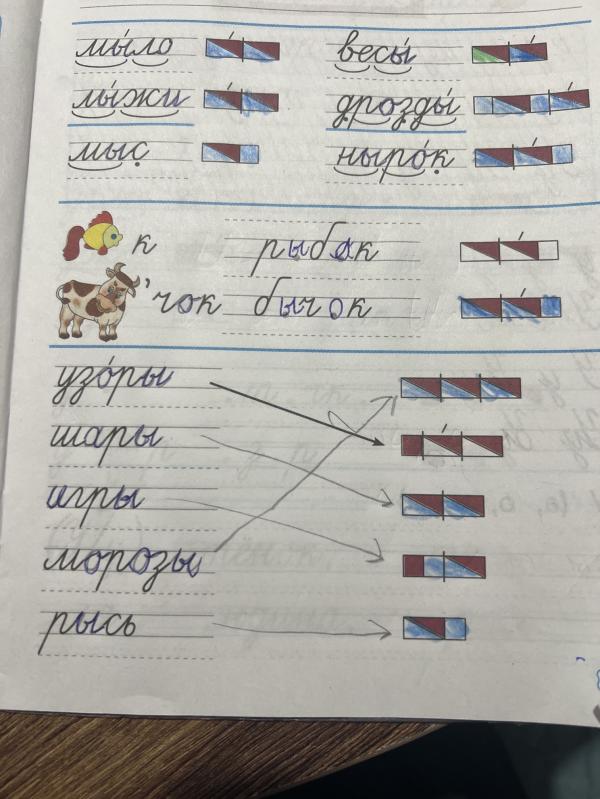 мы́ло весы́
лы́жи дрозды́
мыс ныро́к
к рыбак
'чок бычок
узо́ры
шары
игры
морозы
рысь